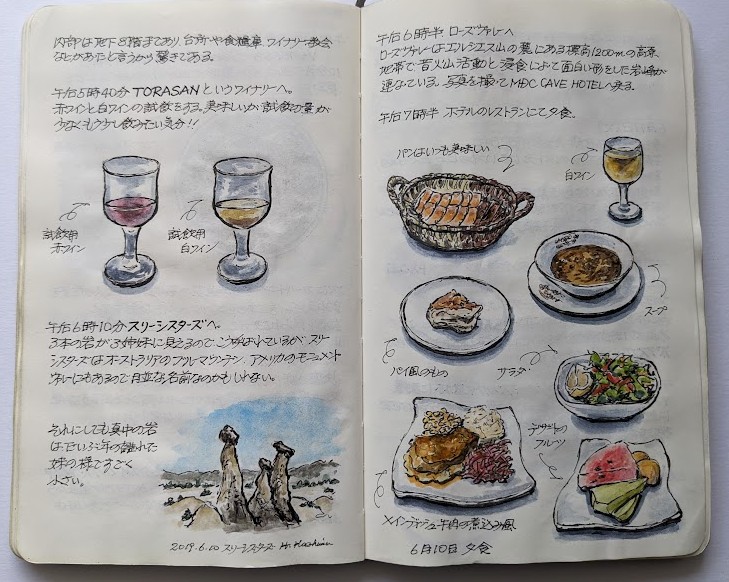 内部は地下8階まであり、台所や食糧庫、ワイナリー、教会
などがあったと言うから驚きである。
午后5時40分 TORASANというワイナリーへ。
赤ワインと白ワインの試飲をする。美味しいが試飲の量が
少なくもう少し飲みたい気分!!
試飲用
赤ワイン
試飲用
白ワイン
午后6時10分スリーシスターズへ。
3本の岩が3姉妹に見えるのでこう呼ばれているが、スリー
シスターズはオーストラリアのブルーマウンテン、アメリカのモニュメント
バレーにもあるので月並な名前なのかもしれない。
それにしても真中の岩
はだいぶ年の離れた
妹の様ですごく
小さい。
2019.6.10 スリーシスターズ
午后6時半 ローズヴァレーへ
ローズヴァレーはエルジエス山の麓にある標高1200mの高原
地帯で昔火山活動と浸食によって面白い形をした岩峰が
連なっている。写真を撮ってMDC CAVE HOTELへ戻る。
午后7時半 ホテルのレストランにて夕食。
パンはいつも美味しい
白ワイン
スープ
パイ風のもの
サラダ
デザートの
フルーツ
メインディッシュ牛肉の煮込み風
6月10日 夕食